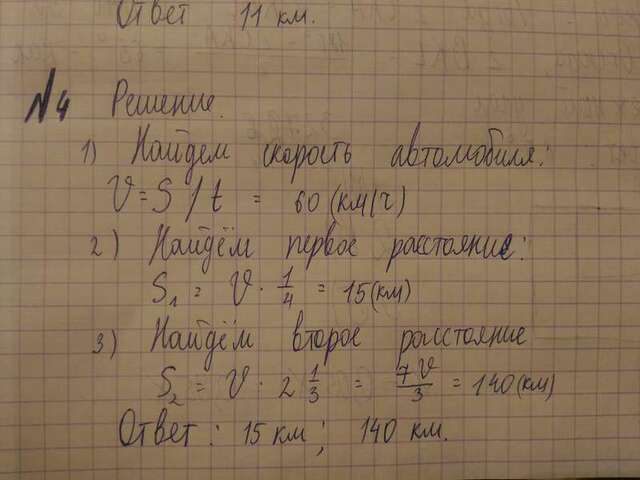 Ответ 11 км.
№4 Решение.
1) Найдем скорость автомобиля:
V = S / t = 60 (км/ч)
2) Найдём первое расстояние:
S₁ = V · 1/4 = 15 (км)
3) Найдём второе расстояние
S₂ = V · 2 1/3 = 7V/3 = 140 (км)
Ответ: 15 км; 140 км.